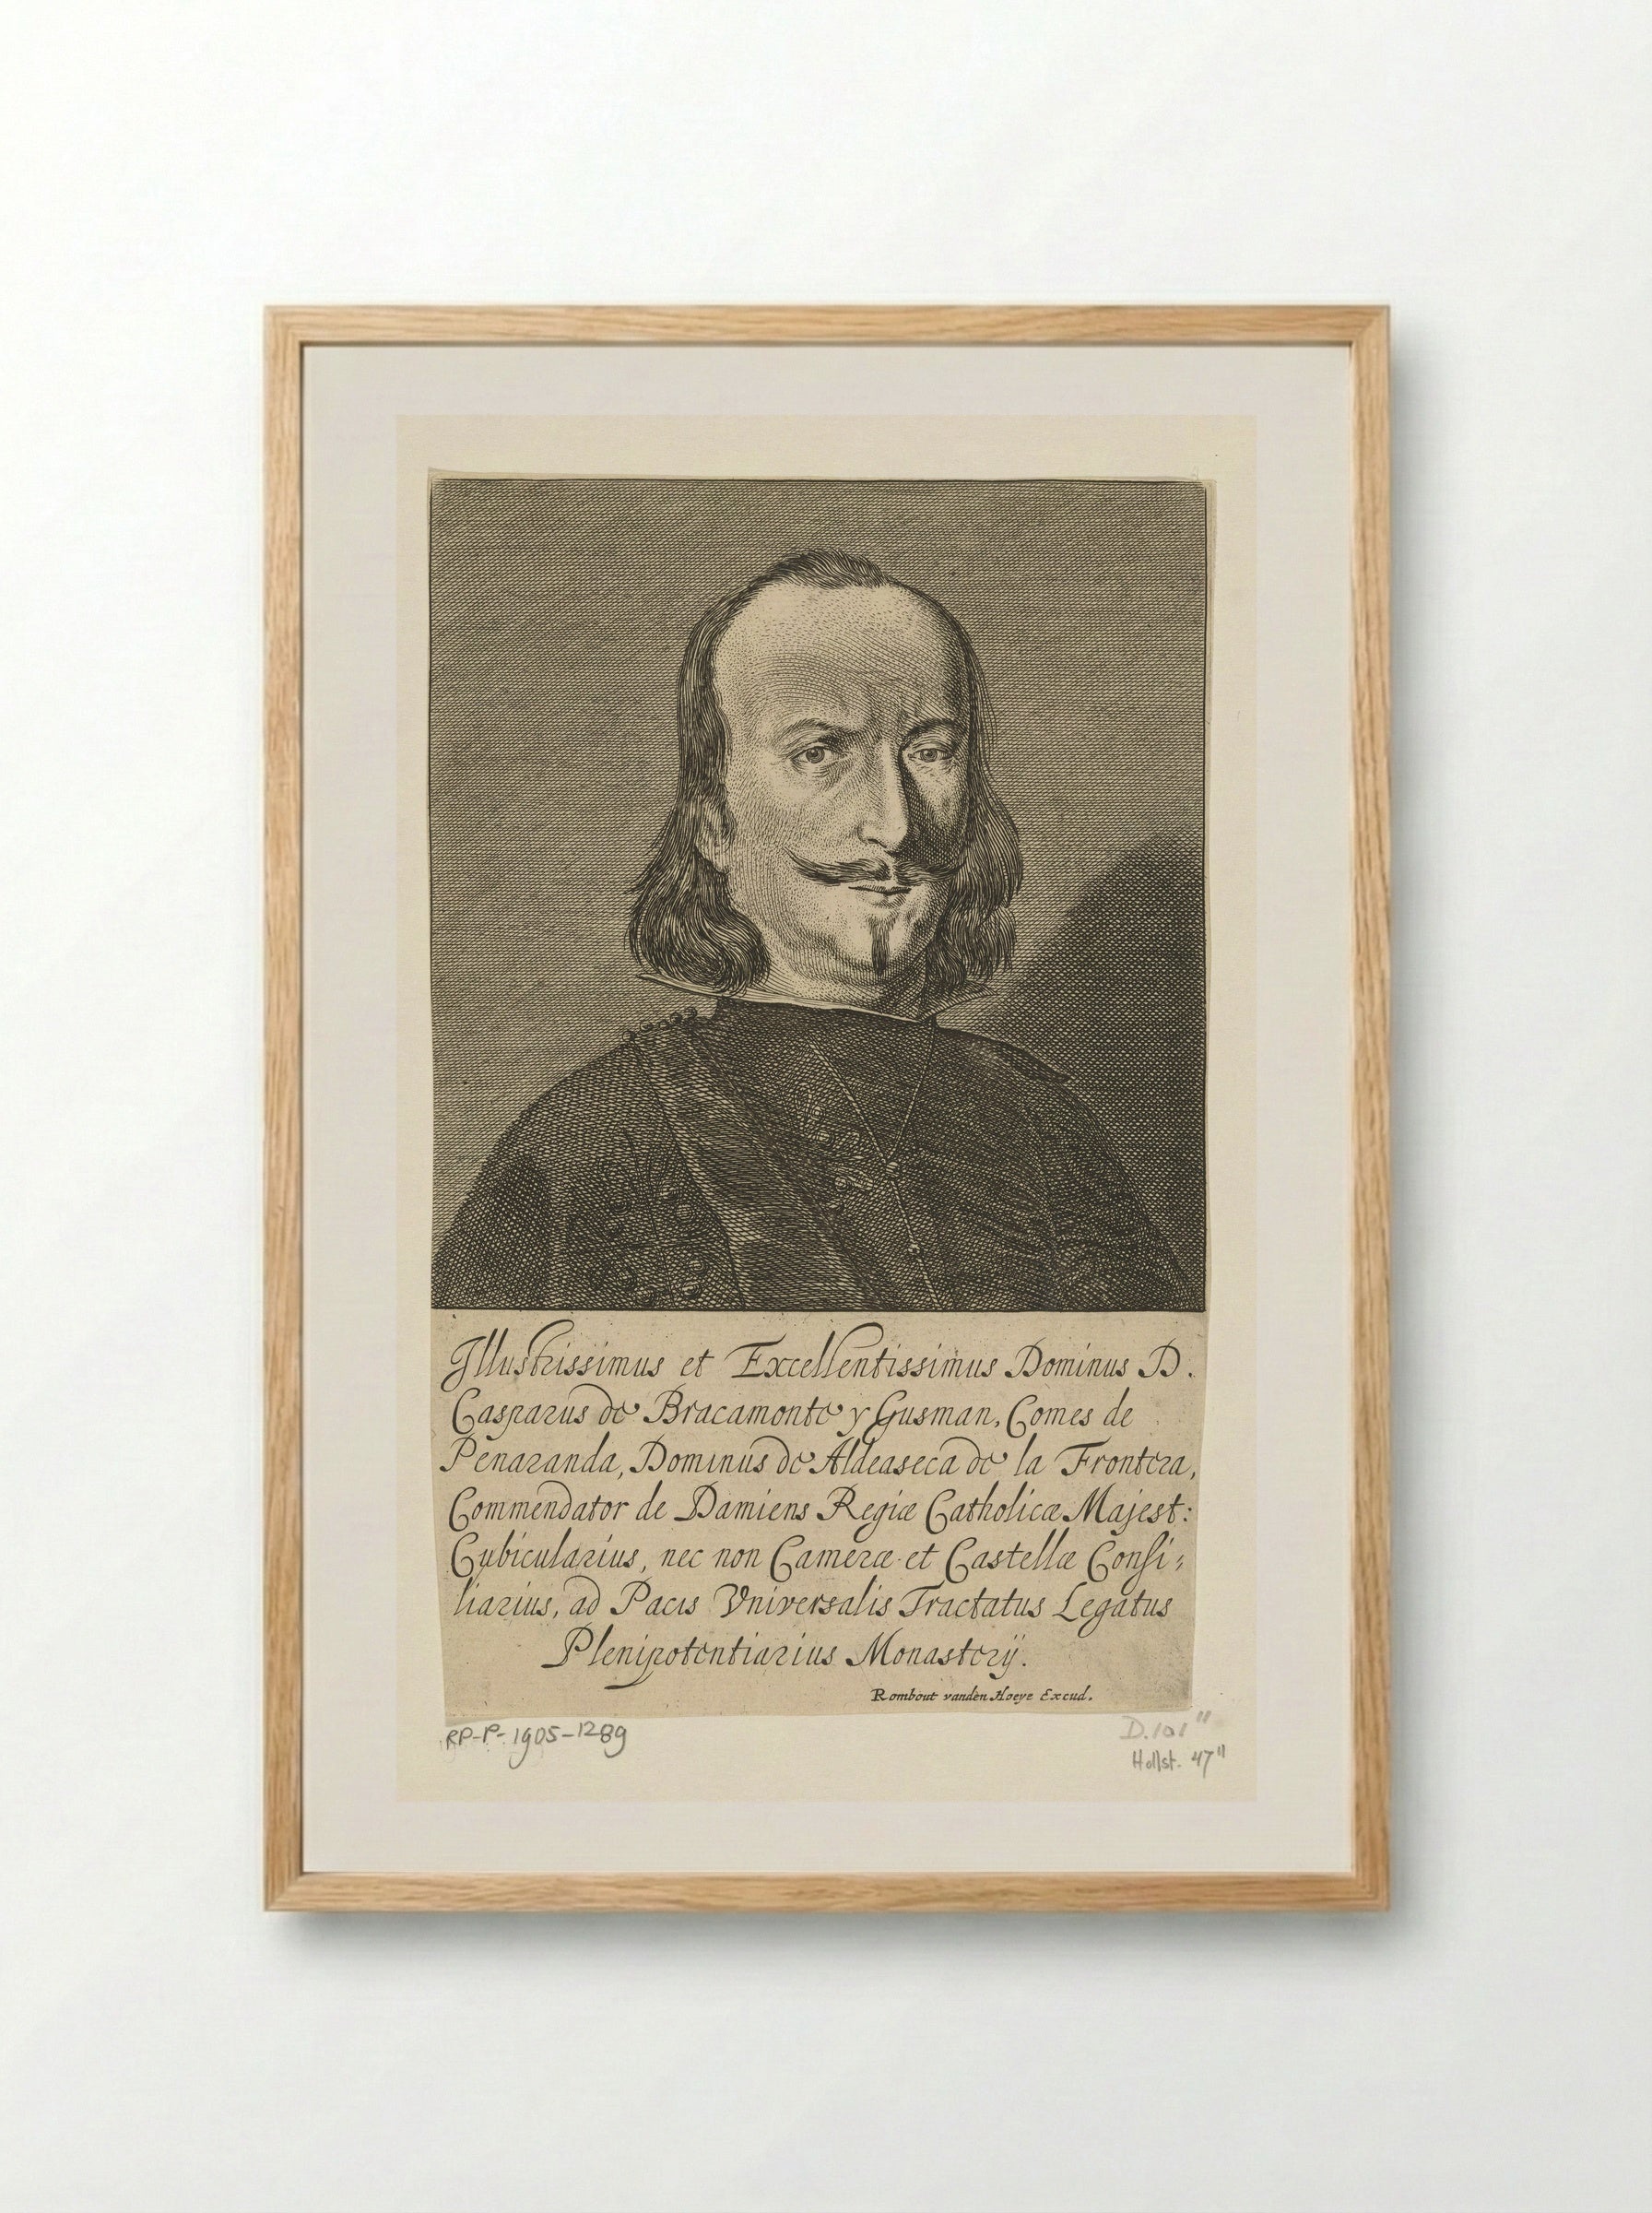 Illustrissimus et Excellentissimus Dominus D.
Casparus de Bracamonte y Gusman, Comes de
Penaranda, Dominus de Aldeaseca de la Frontera,
Commendator de Damiens Regiæ Catholicæ Majest:
Cubicularius, nec non Cameræ et Castellæ Consi-
liarius, ad Pacis Vniversalis Tractatus Legatus
Plenipotentiarius Monasterij.
Rombout vanden Hoeye Excud.
RP-P-1905-1289
D.101"
Hollst. 47"